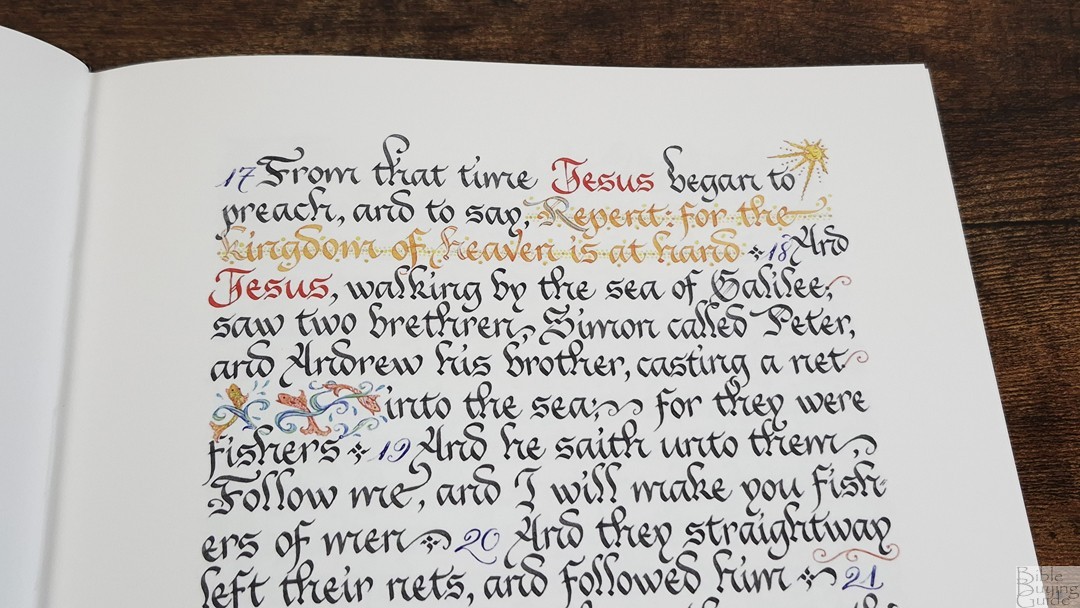 17 From that time Jesus began to
preach, and to say, Repent: for the
kingdom of heaven is at hand 18 And
Jesus, walking by the sea of Galilee,
saw two brethren, Simon called Peter,
and Andrew his brother, casting a net
into the sea; for they were
fishers 19 And he saith unto them,
Follow me, and I will make you fish-
ers of men 20 And they straightway
left their nets, and followed him 21
Bible
Buying
Guide